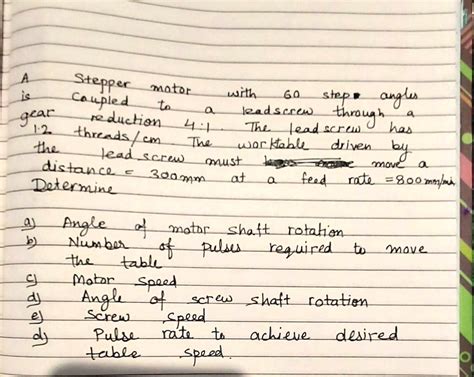 A Stepper motor with 60 step angles
is Coupled to a leadscrew through a
gear reduction 4:1. The lead screw has
1.2 threads/cm. The worktable driven by
the lead screw must move a
distance = 300mm at a feed rate = 800 mm/min
Determine
a) Angle of motor shaft rotation
b) Number of pulses required to move
the table
c) Motor Speed
d) Angle of screw shaft rotation
e) Screw Speed
d) Pulse rate to achieve desired
table speed.